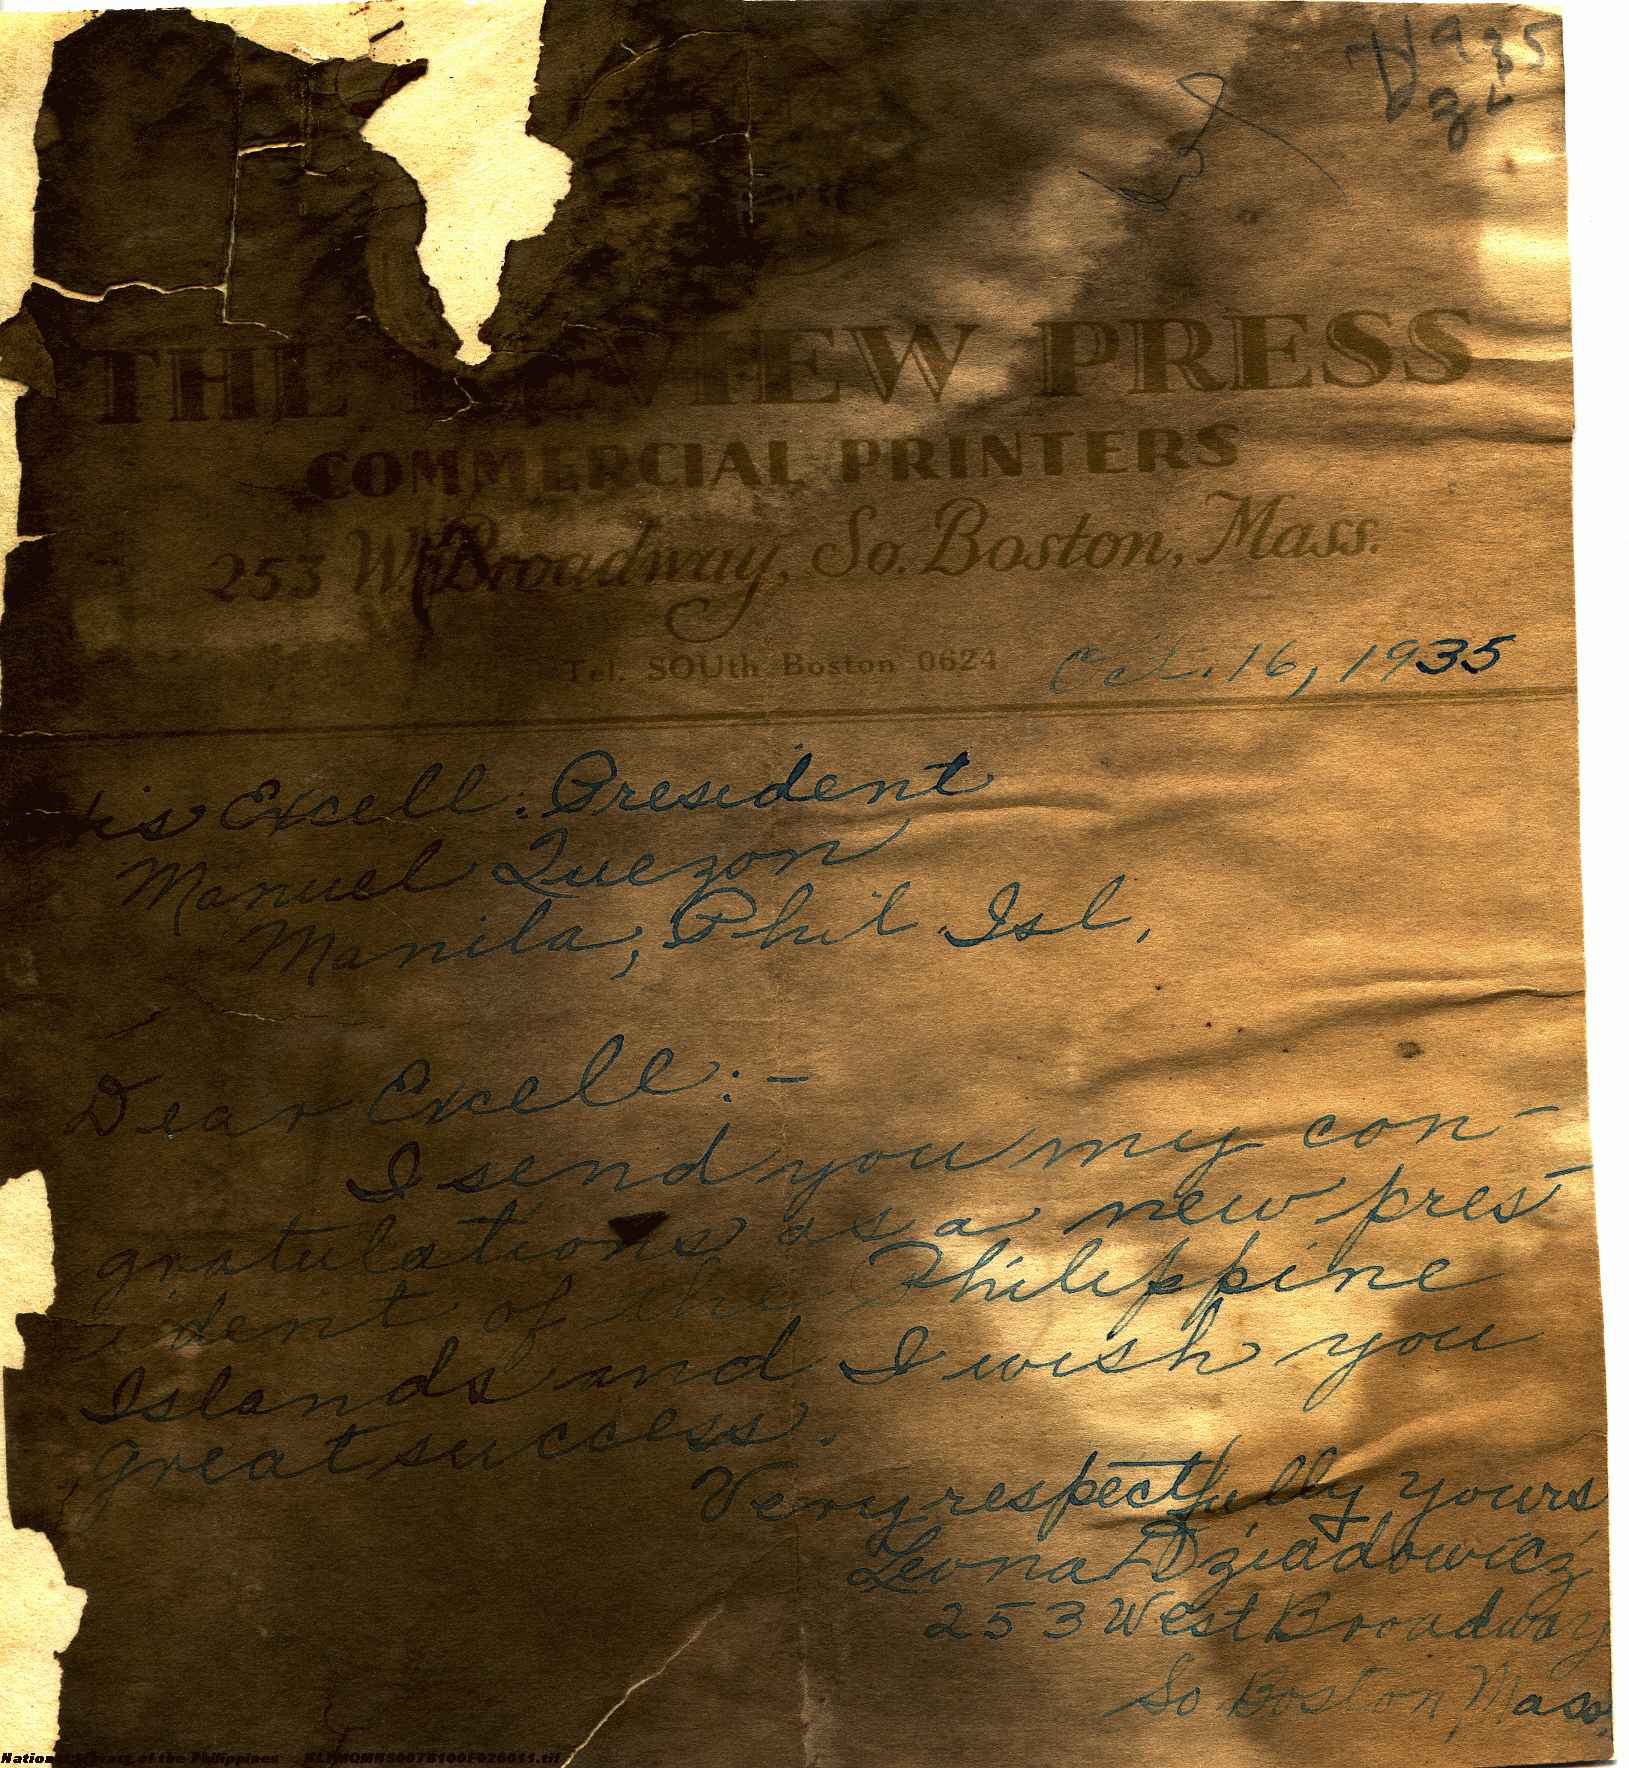 1935
THE REVIEW PRESS
COMMERCIAL PRINTERS
253 W. Broadway, So. Boston, Mass.
Tel. SOUth Boston 0624 Oct. 16, 1935
His Excell. President
Manuel Quezon
Manila, Phil. Isl.
Dear Excell:-
I send you my con-
gratulations as a new pres-
ident of the Philippine
Islands and I wish you
great success.
Very respectfully yours
Leona Dziadowicz
253 West Broadway
So Boston, Mass.
National Library of the Philippines